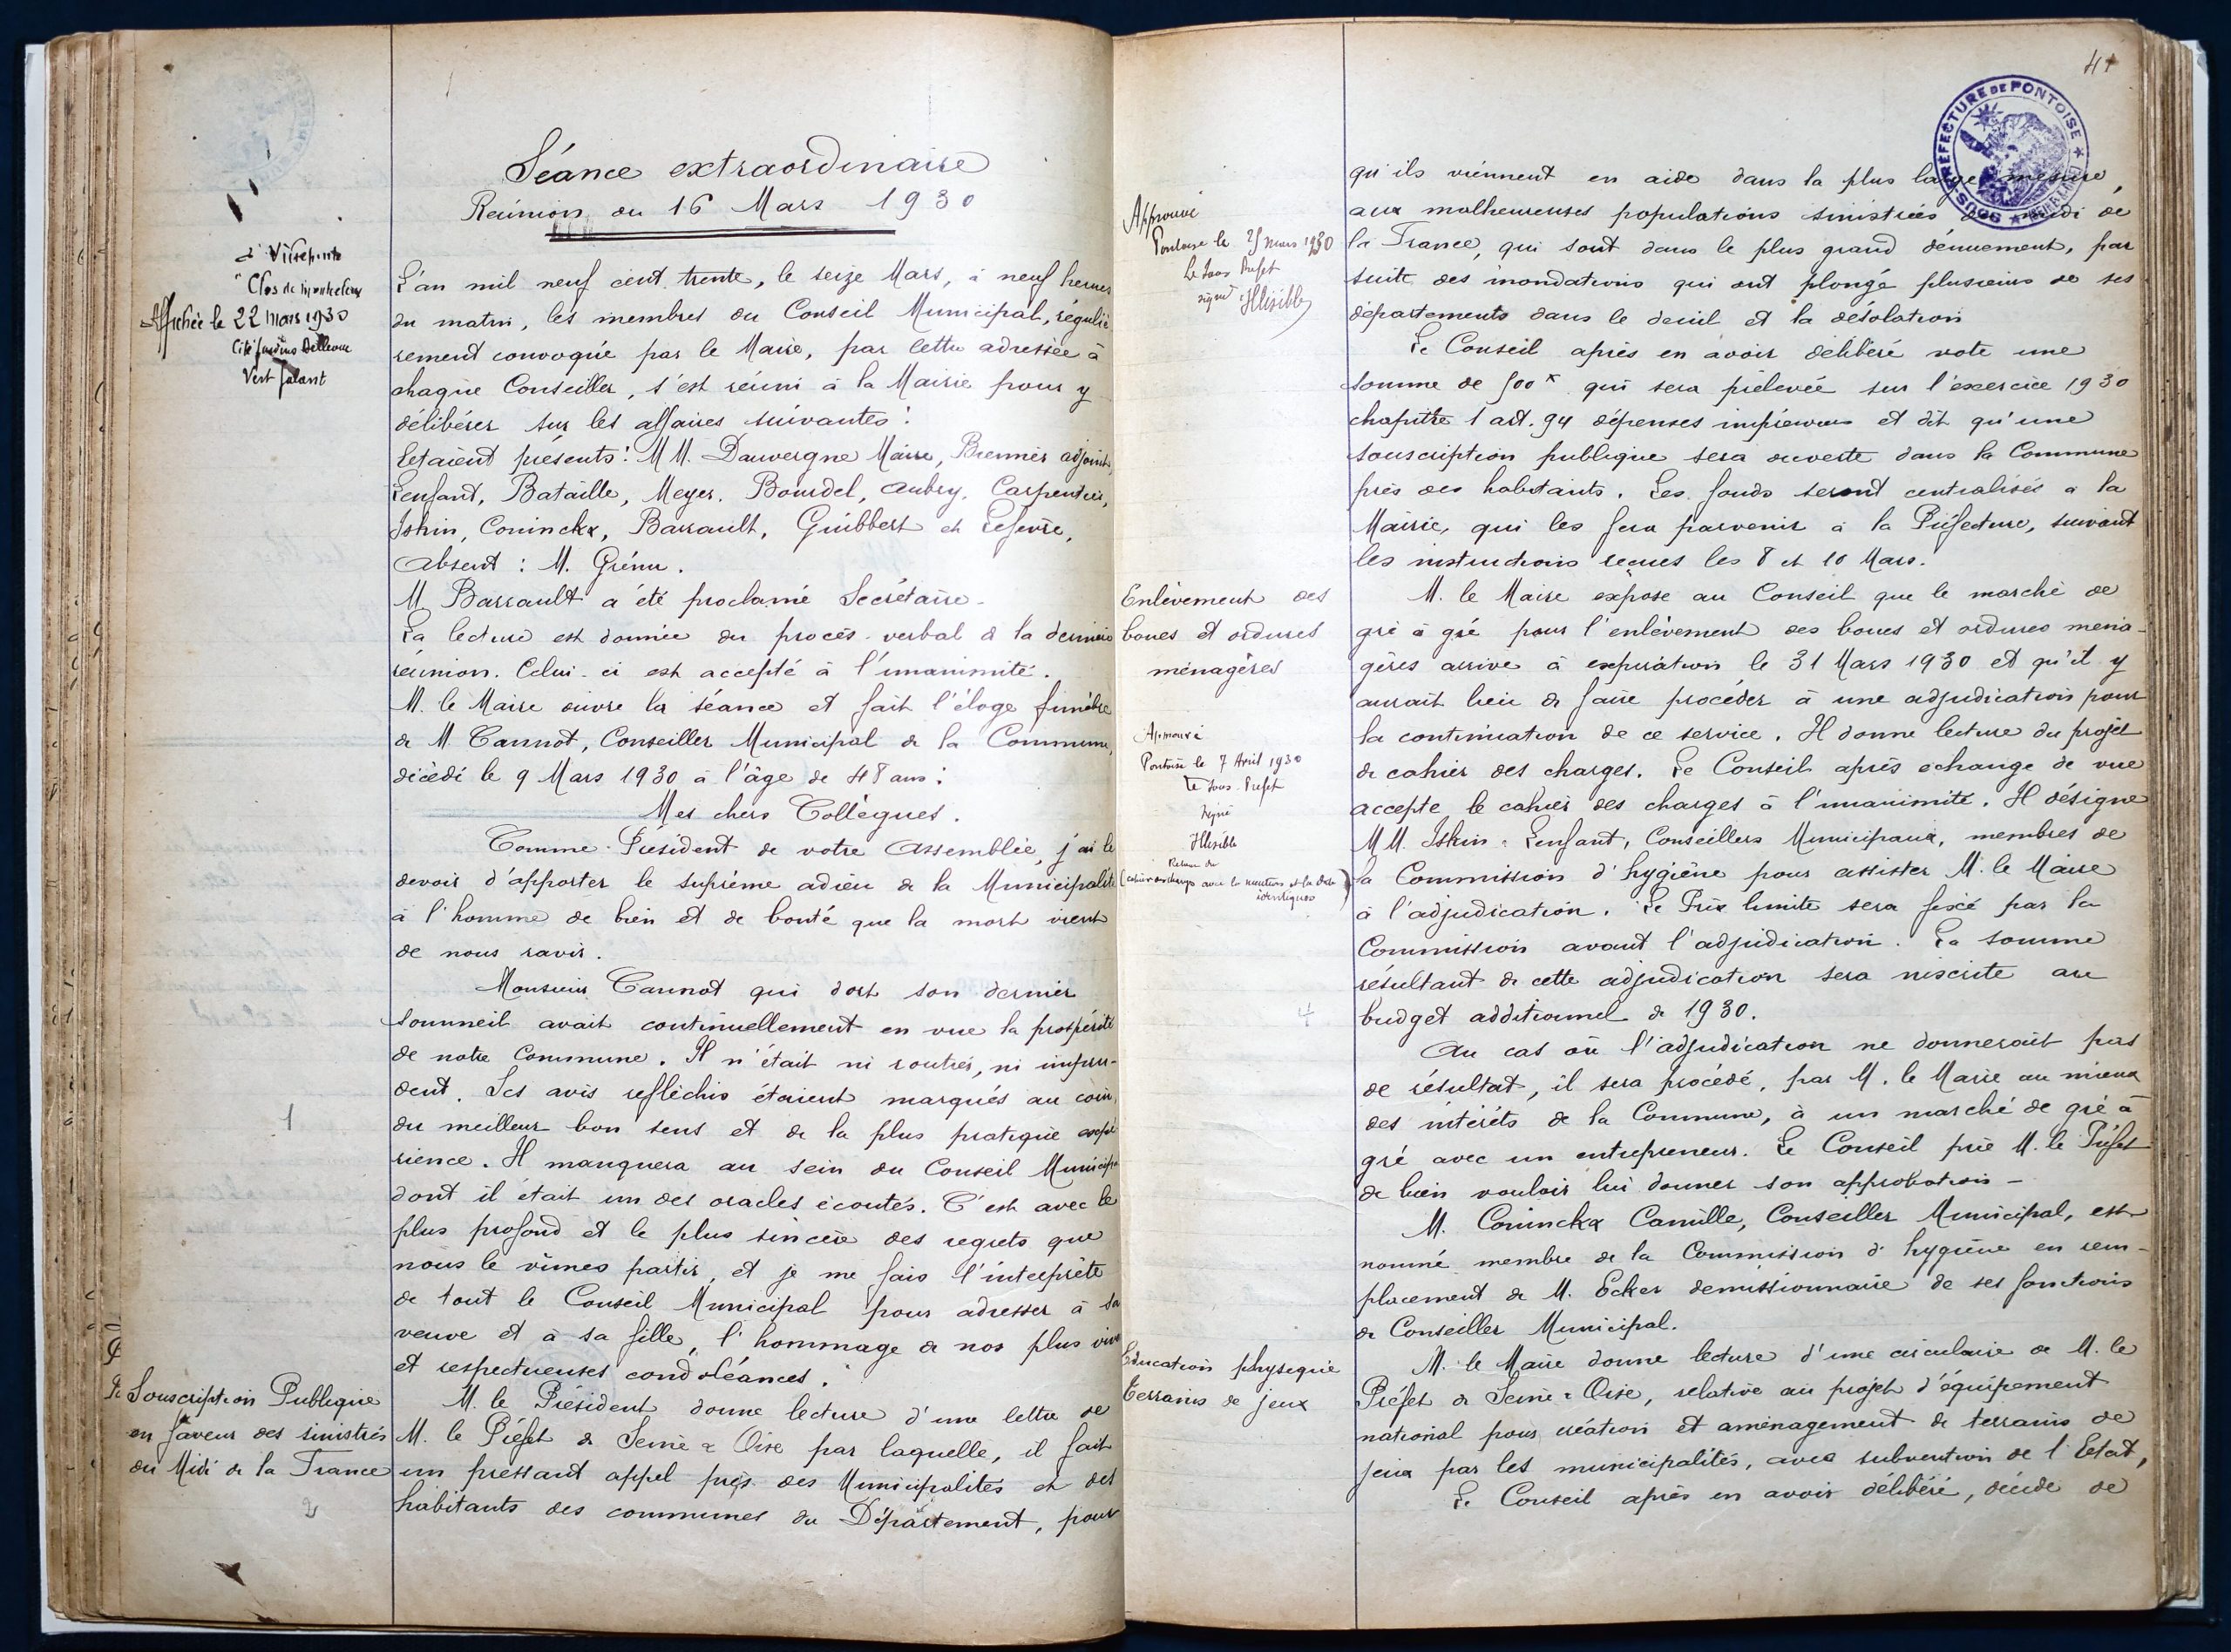 Séance extraordinaire
Réunion du 16 Mars 1930
à Villepinte
" Clos de Montceleux
Affichée le 22 mars 1930
Cité Jardins Bellevue
Vert Galant
L'an mil neuf cent trente, le seize Mars, à neuf heures
du matin, les membres du Conseil Municipal, réguliè
rement convoqué par le Maire, par lettre adressée à
chaque Conseiller, s'est réuni à la Mairie pour y
délibérer sur les affaires suivantes :
Etaient présents : M M. Dauvergne Maire, Brennier adjoint,
Lenfant, Bataille, Meyer, Bourdel, Aubry, Carpentier,
Iskin, Coninckx, Barrault, Guibbert et Lefèvre,
Absent : M. Grénu.
M Barrault a été proclamé Secrétaire -
La lecture est donnée du procès-verbal de la dernière
réunion. Celui-ci est accepté à l'unanimité.
M. le Maire ouvre la séance et fait l'éloge funèbre
de M. Cannot, Conseiller Municipal de la Commune,
décédé le 9 Mars 1930 à l'âge de 48 ans :
Mes chers Collègues.
Comme Président de votre Assemblée, j'ai le
devoir d'apporter le suprème adieu de la Municipalité
à l'homme de bien et de bonté que la mort vient
de nous ravir.
Monsieur Cannot qui dort son dernier
sommeil avait continuellement en vue la prospérité
de notre Commune. Il n'était ni routier, ni impru-
dent. Ses avis refléchis étaient marqués au coin,
du meilleur bon sens et de la plus pratique expé
rience. Il manquera au sein du Conseil Municipal
dont il était un des oracles écoutés. C'est avec le
plus profond et le plus sincère des regrets que
nous le vîmes partir, et je me fais l'interprète
de tout le Conseil Municipal pour adresser à sa
veuve et à sa fille, l'hommage de nos plus vives
et respectueuses condoléances.
1
Souscription Publique
en faveur des sinistrés
du Midi de la France
2
M. le Président donne lecture d'une lettre de
M. le Préfet de Seine & Oise par laquelle, il fait
un pressant appel près des Municipalités et des
habitants des communes du Département, pour
41
SOUS-PREFECTURE DE PONTOISE
qu'ils viennent en aide dans la plus large mesure,
aux malheureuses populations sinistrées du midi de
la France, qui sont dans le plus grand dénuement, par
suite des inondations qui ont plongé plusieurs de ses
départements dans le deuil et la désolation
Approuvé
Pontoise le 25 mars 1930
Le Sous Préfet
signé : Illisible
Le Conseil après en avoir délibéré vote une
somme de 500 x qui sera prélevée sur l'exercice 1930
chapitre 1 art. 94 dépenses imprévues et dit qu'une
souscription publique sera ouverte dans la Commune
près des habitants. Les fonds seront centralisés à la
Mairie, qui les fera parvenir à la Préfecture, suivant
les instructions reçues les 8 et 10 Mars.
Enlèvement des
boues et ordures
ménagères
M. le Maire expose au Conseil que le marché de
gré à gré pour l'enlèvement des boues et ordures ména-
gères arrive à expiration le 31 Mars 1930 et qu'il y
aurait lieu de faire procéder à une adjudication pour
la continuation de ce service. Il donne lecture du projet
de cahier des charges. Le Conseil après échange de vue
accepte le cahier des charges à l'unanimité. Il désigne
M M. Iskin & Lenfant, Conseillers Municipaux, membres de
la Commission d'hygiène pour assister M. le Maire
à l'adjudication. Le Prix limite sera fixé par la
Commission avant l'adjudication. La somme
résultant de cette adjudication sera inscrite au
budget additionnel de 1930.
Approuvé
Pontoise le 7 Avril 1930
Le Sous-Préfet
Signé
Illisible
Retour du
(cahier des charges avec la mention et la date
identiques)
Au cas où l'adjudication ne donnerait pas
de résultat, il sera procédé, par M. le Maire au mieux
des intérêts de la Commune, à un marché de gré à
gré avec un entrepreneur. Le Conseil prie M. le Préfet
de bien vouloir lui donner son approbation -
M. Coninckx Camille, Conseiller Municipal, est
nommé membre de la Commission d'hygiène en rem-
placement de M. Ecker demissionnaire de ses fonctions
de Conseiller Municipal.
Education physique
Terrains de jeux
M. le Maire donne lecture d'une circulaire de M. le
Préfet de Seine & Oise, relative au projet d'équipement
national pour création et aménagement de terrains de
jeux par les municipalités, avec subvention de l'Etat,
Le Conseil après en avoir délibéré, décide de